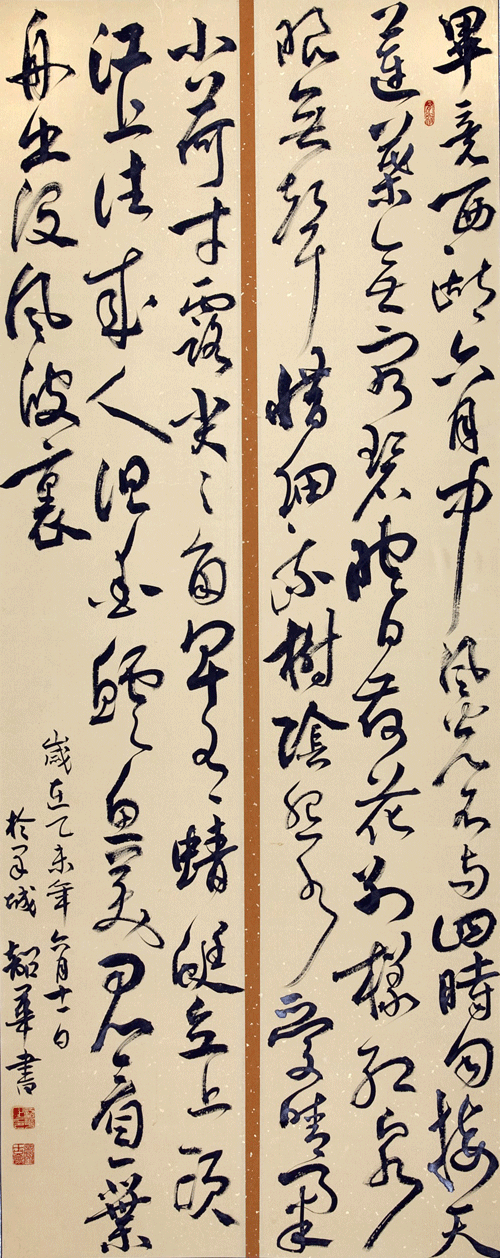 畢竟西湖六月中風光不與四時同接天
蓮葉無窮碧映日荷花別樣紅泉
眼無聲惜細流樹陰照水愛晴柔
小荷才露尖々角早有蜻蜓立上頭
江上往來人但愛鱸魚美君看一葉
舟出没風波裏
歲在乙未年六月十一日
於羊城 韶華書